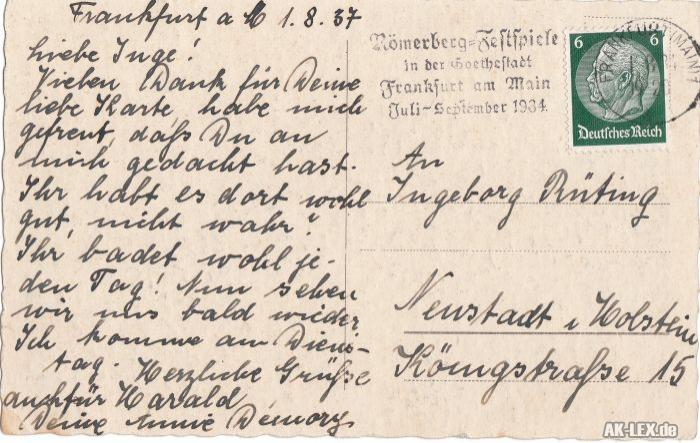 Frankfurt a M 1.8.37
Liebe Inge!
Vielen Dank für Deine
liebe Karte, habe mich
gefreut, daß Du an
mich gedacht hast.
Ihr habt es dort wohl
gut, nicht wahr?
Ihr badet wohl je-
den Tag! Nun sehen
wir uns bald wieder
Ich komme am Diens-
tag. Herzliche Grüße
auch für Harald
Deine Annie
Römerberg=Festspiele
in der Goethestadt
Frankfurt am Main
Juli-September 1934
6 6
Deutsches Reich
FRANKFURT (MAIN)
An
Ingeborg Rüting
Neustadt i Holstein
Königstraße 15
AK-LEX.de